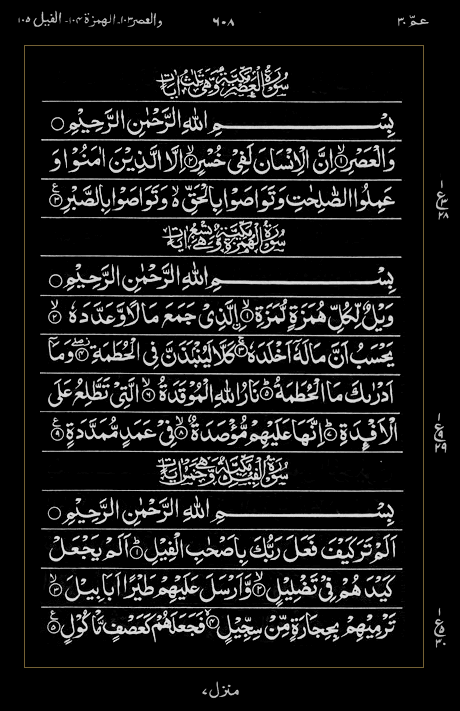 عمّ ٣٠ ٦٠٨ والعصر ١٠٣ - الهمزة ١٠٤ - الفيل ١٠٥
سُوْرَةُ الْعَصْرِ مَكِّيَّةٌ وَّهِيَ ثَلٰثُ اٰيَاتٍ
بِسْـــــــمِ اللّٰهِ الرَّحْمٰنِ الرَّحِيْمِ ○
وَالْعَصْرِ ۙ﴿١﴾ اِنَّ الْاِنْسَانَ لَفِيْ خُسْرٍ ۙ﴿٢﴾ اِلَّا الَّذِيْنَ اٰمَنُوْا وَ
عَمِلُوا الصّٰلِحٰتِ وَتَوَاصَوْا بِالْحَقِّ ۙ۬ وَتَوَاصَوْا بِالصَّبْرِ ﴿٣﴾
١ ع ٣ ٢٨
سُوْرَةُ الْهُمَزَةِ مَكِّيَّةٌ وَّهِيَ تِسْعُ اٰيَاتٍ
بِسْـــــــمِ اللّٰهِ الرَّحْمٰنِ الرَّحِيْمِ ○
وَيْلٌ لِّكُلِّ هُمَزَةٍ لُّمَزَةِ ۙ﴿١﴾ اِلَّذِيْ جَمَعَ مَالًا وَّعَدَّدَهٗ ۙ﴿٢﴾
يَحْسَبُ اَنَّ مَالَهٗٓ اَخْلَدَهٗ ۚ﴿٣﴾ كَلَّا لَيُنْۢبَذَنَّ فِي الْحُطَمَةِ ۖ﴿٤﴾ وَمَآ
اَدْرٰىكَ مَا الْحُطَمَةُ ؕ﴿٥﴾ نَارُ اللّٰهِ الْمُوْقَدَةُ ۙ﴿٦﴾ الَّتِيْ تَطَّلِعُ عَلَى
الْاَفْـِٕدَةِ ؕ﴿٧﴾ اِنَّهَا عَلَيْهِمْ مُّؤْصَدَةٌ ۙ﴿٨﴾ فِيْ عَمَدٍ مُّمَدَّدَةٍ ﴿٩﴾
١ ع ٩ ٢٩
سُوْرَةُ الْفِيْلِ مَكِّيَّةٌ وَّهِيَ خَمْسُ اٰيَاتٍ
بِسْـــــــمِ اللّٰهِ الرَّحْمٰنِ الرَّحِيْمِ ○
اَلَمْ تَرَ كَيْفَ فَعَلَ رَبُّكَ بِاَصْحٰبِ الْفِيْلِ ؕ﴿١﴾ اَلَمْ يَجْعَلْ
كَيْدَهُمْ فِيْ تَضْلِيْلٍ ۙ﴿٢﴾ وَّاَرْسَلَ عَلَيْهِمْ طَيْرًا اَبَابِيْلَ ۙ﴿٣﴾
تَرْمِيْهِمْ بِحِجَارَةٍ مِّنْ سِجِّيْلٍ ۙ﴿٤﴾ فَجَعَلَهُمْ كَعَصْفٍ مَّاْكُوْلٍ ﴿٥﴾
١ ع ٥ ٣٠
منزل ٧